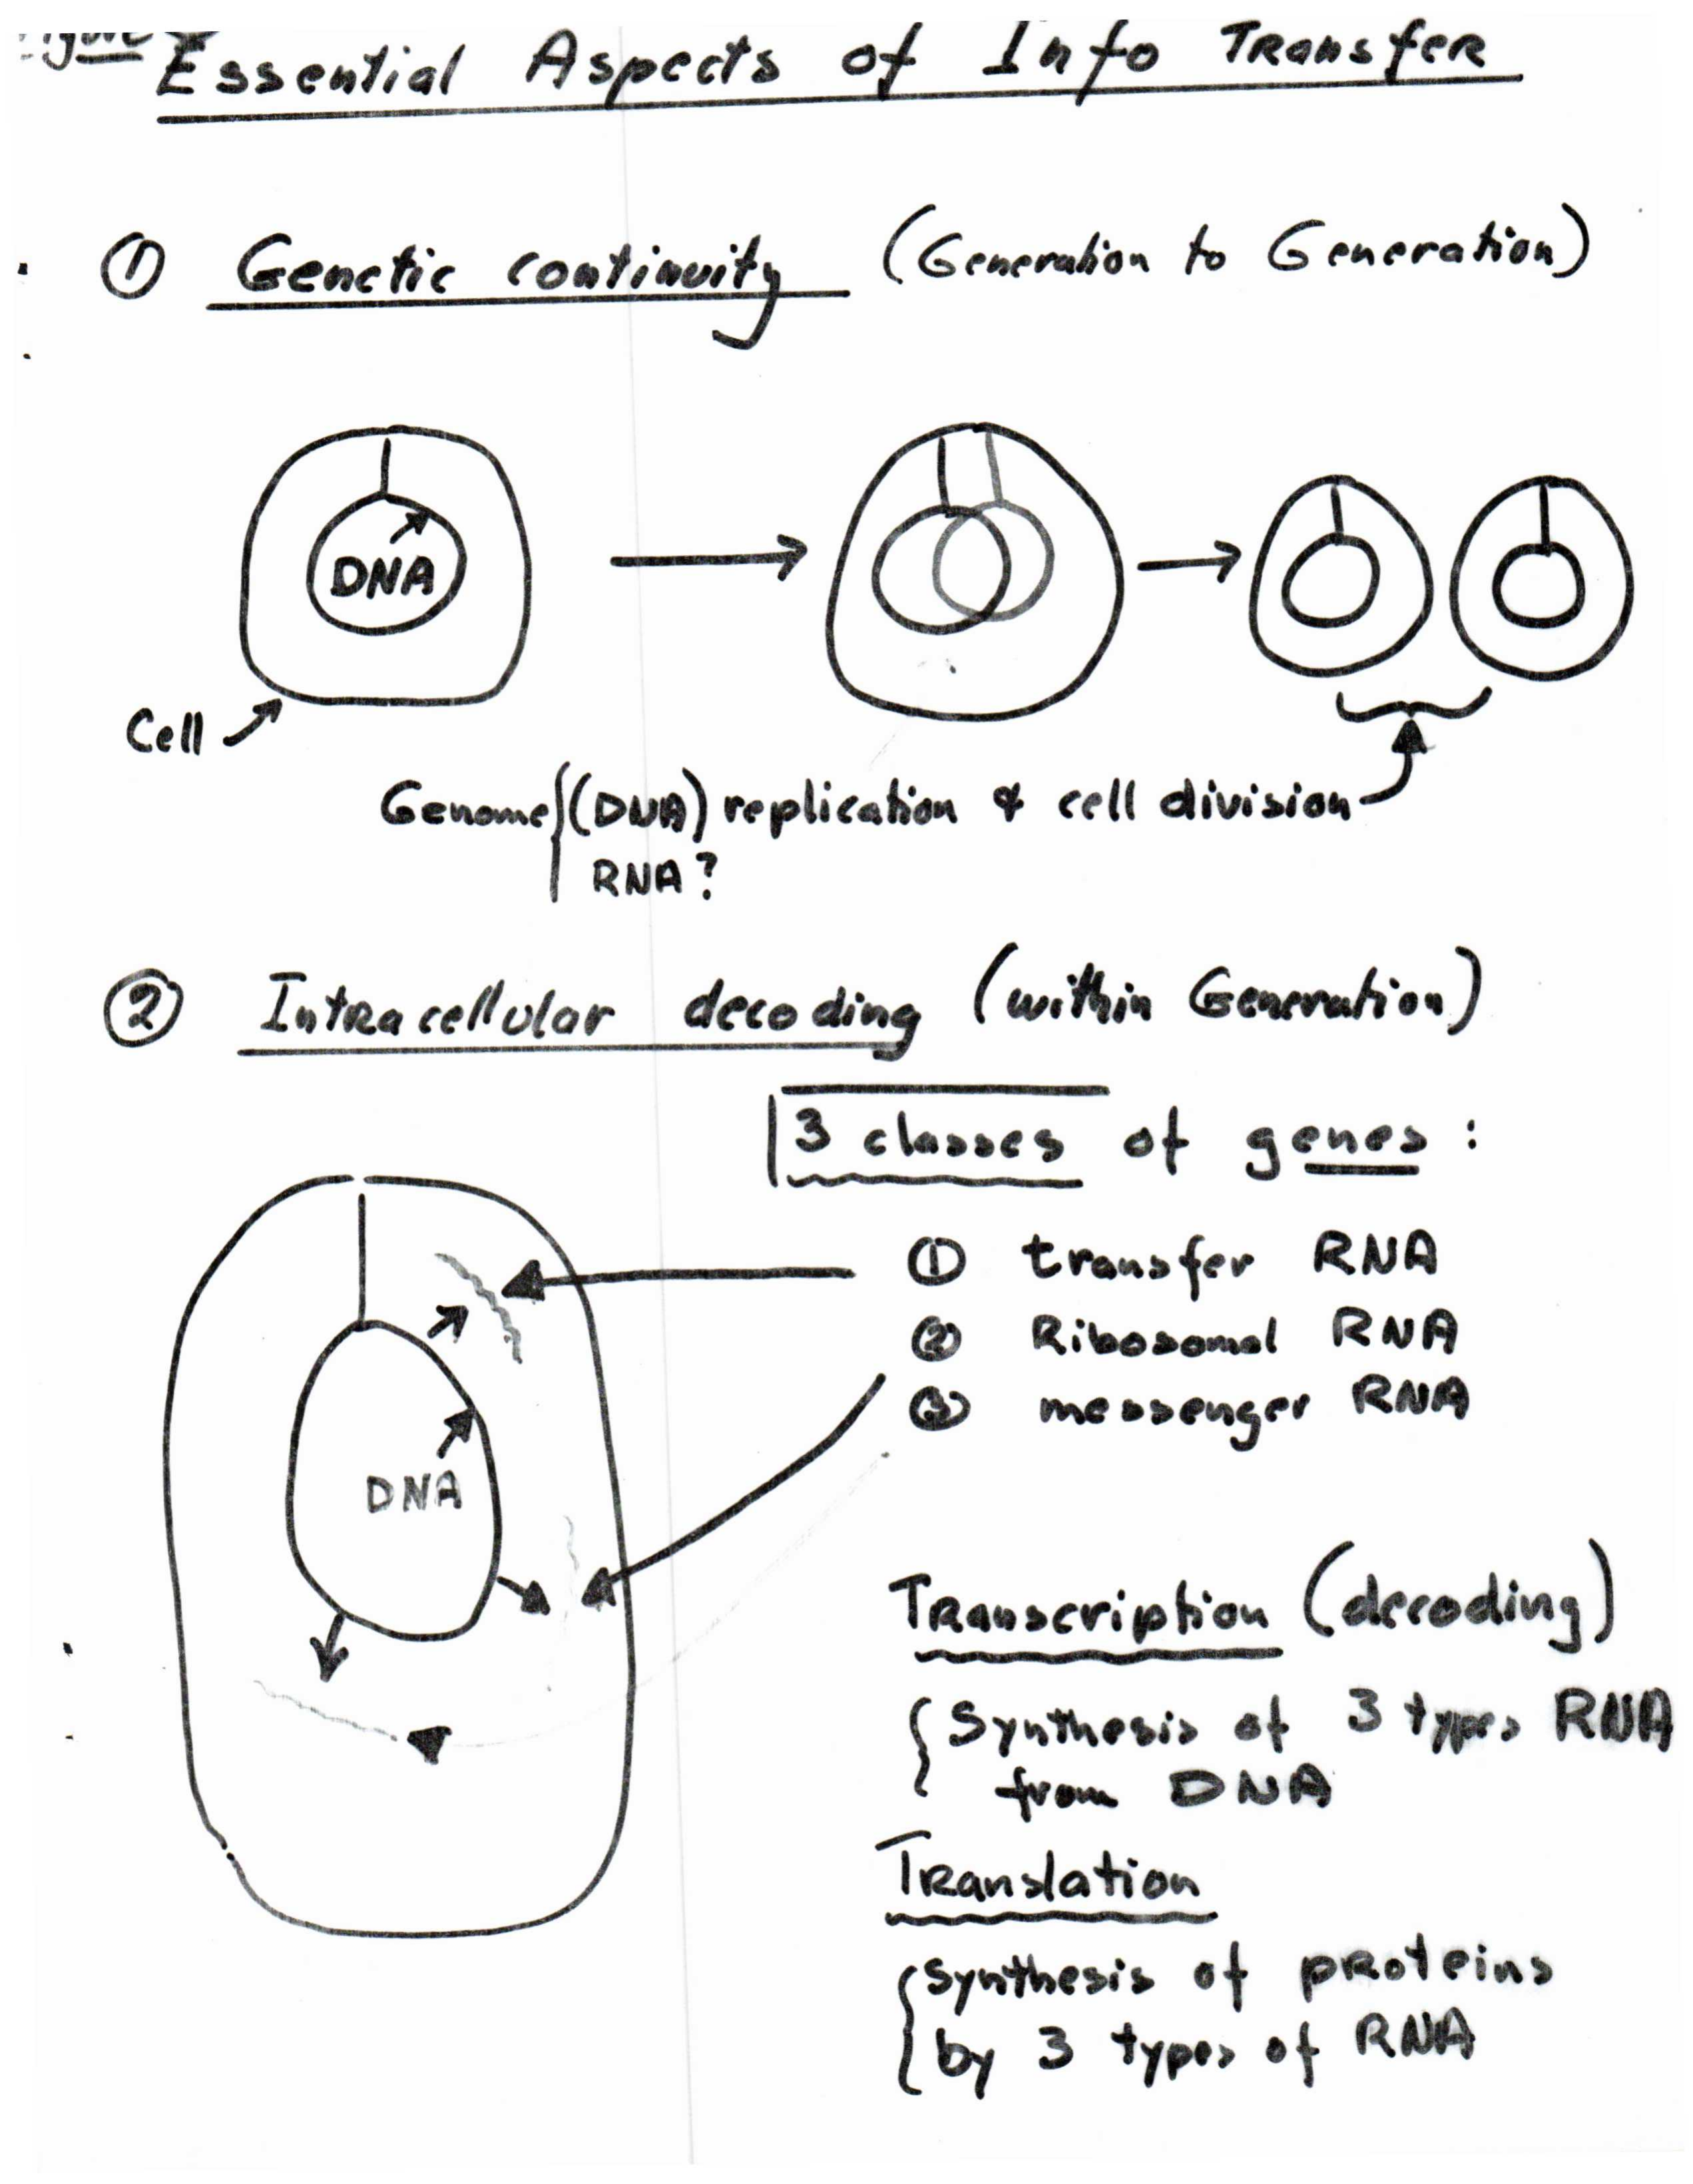 Figure
Essential Aspects of Info Transfer
① Genetic continuity (Generation to Generation)
DNA
Cell
Genome {(DNA) replication & cell division
RNA?
② Intracellular decoding (within Generation)
3 classes of genes:
① transfer RNA
② Ribosomal RNA
③ messenger RNA
DNA
Transcription (decoding)
{Synthesis of 3 types RNA
from DNA
Translation
{synthesis of proteins
by 3 types of RNA